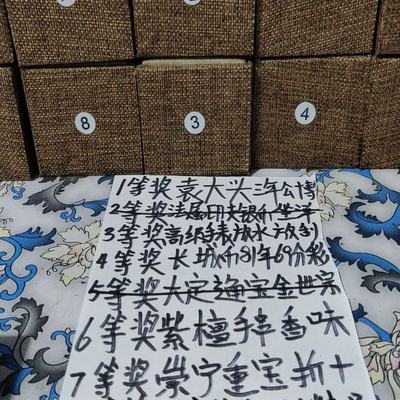 8
3
4
1等奖袁大头三年公博
2等奖法属印支银币坐洋
3等奖高级手表放水
4等奖长城币81年69分彩
5等奖大定通宝金世宗
6等奖紫檀手串香味
7等奖崇宁重宝折十